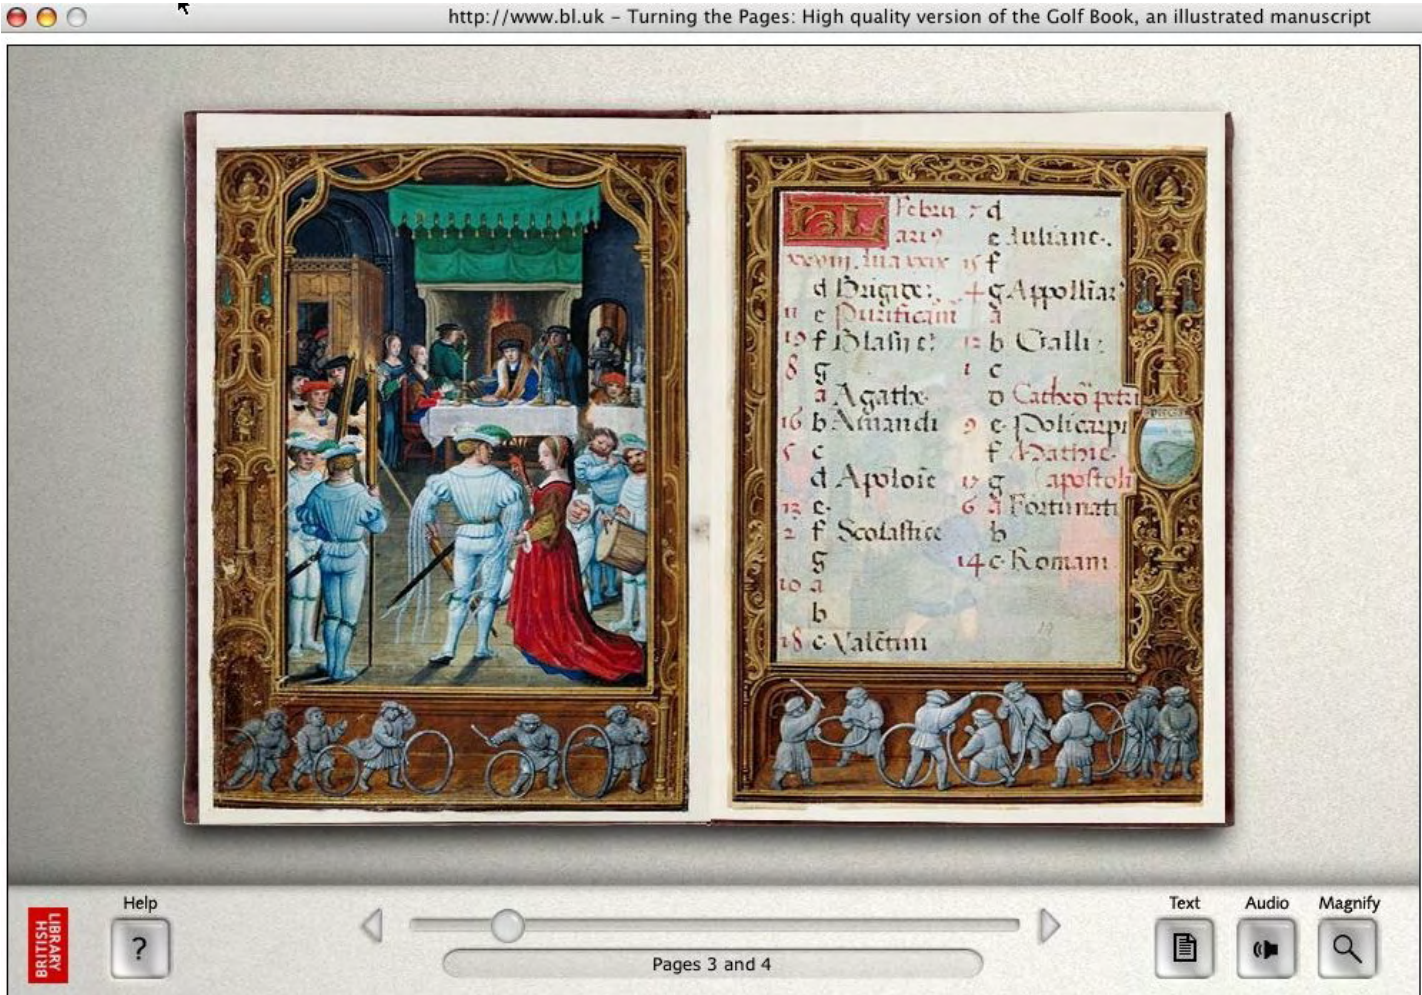 http://www.bl.uk – Turning the Pages: High quality version of the Golf Book, an illustrated manuscript
KL Februari9
xxviii. lūa xxix
d Brigite.
11 e Purificatio
19 f Blasii e.
8 g
a Agathe.
16 b Amandi
5 c
d Apoloīe
13 e.
2 f Scolastice
g
10 a
b
18 c Valētini
7 d
e Iuliane.
15 f
4 g Appolliār
a
12 b Galli.
1 c
D Cathed petri
9 e Policarpi
f Mathie.
17 g apostoli
6 a Fortunati
b
14 c Romani
PISCES
BRITISH
LIBRARY
Help
?
Pages 3 and 4
Text
Audio
Magnify